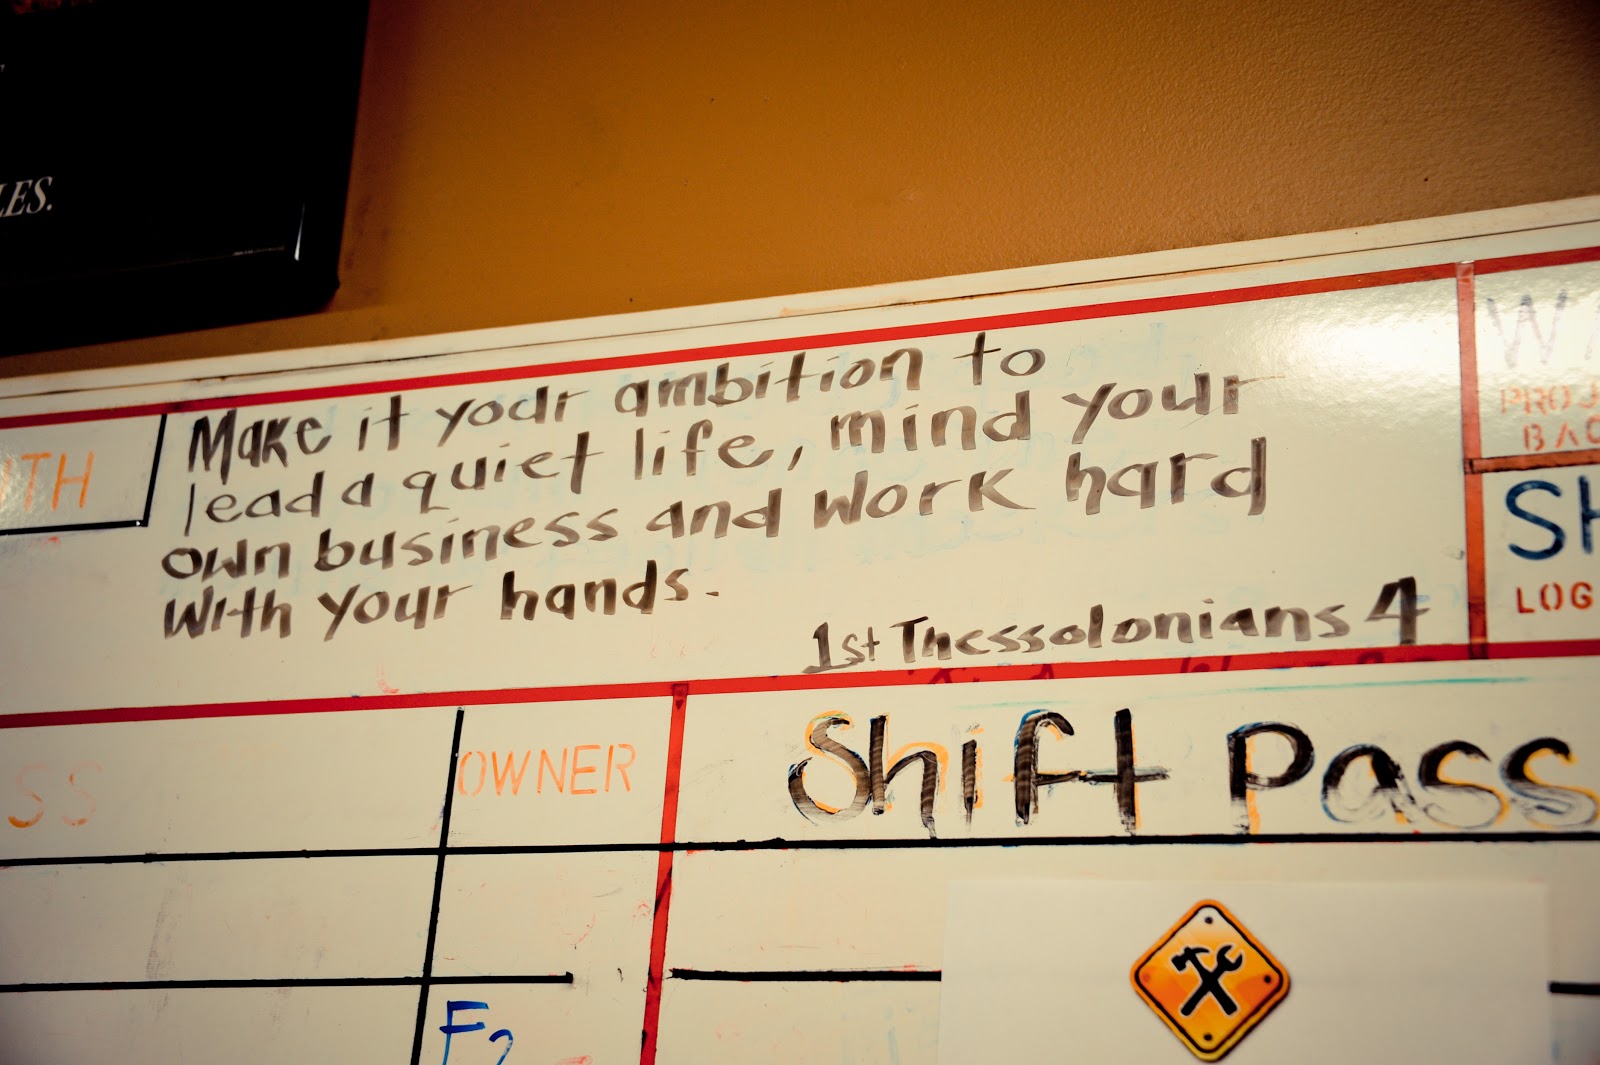 LES.
Make it your ambition to
lead a quiet life, mind your
own business and work hard
with your hands.
1st Thessolonians 4
ITH
W
PROJ
BAC
SH
LOG
SS
OWNER
Shift Pass
F2